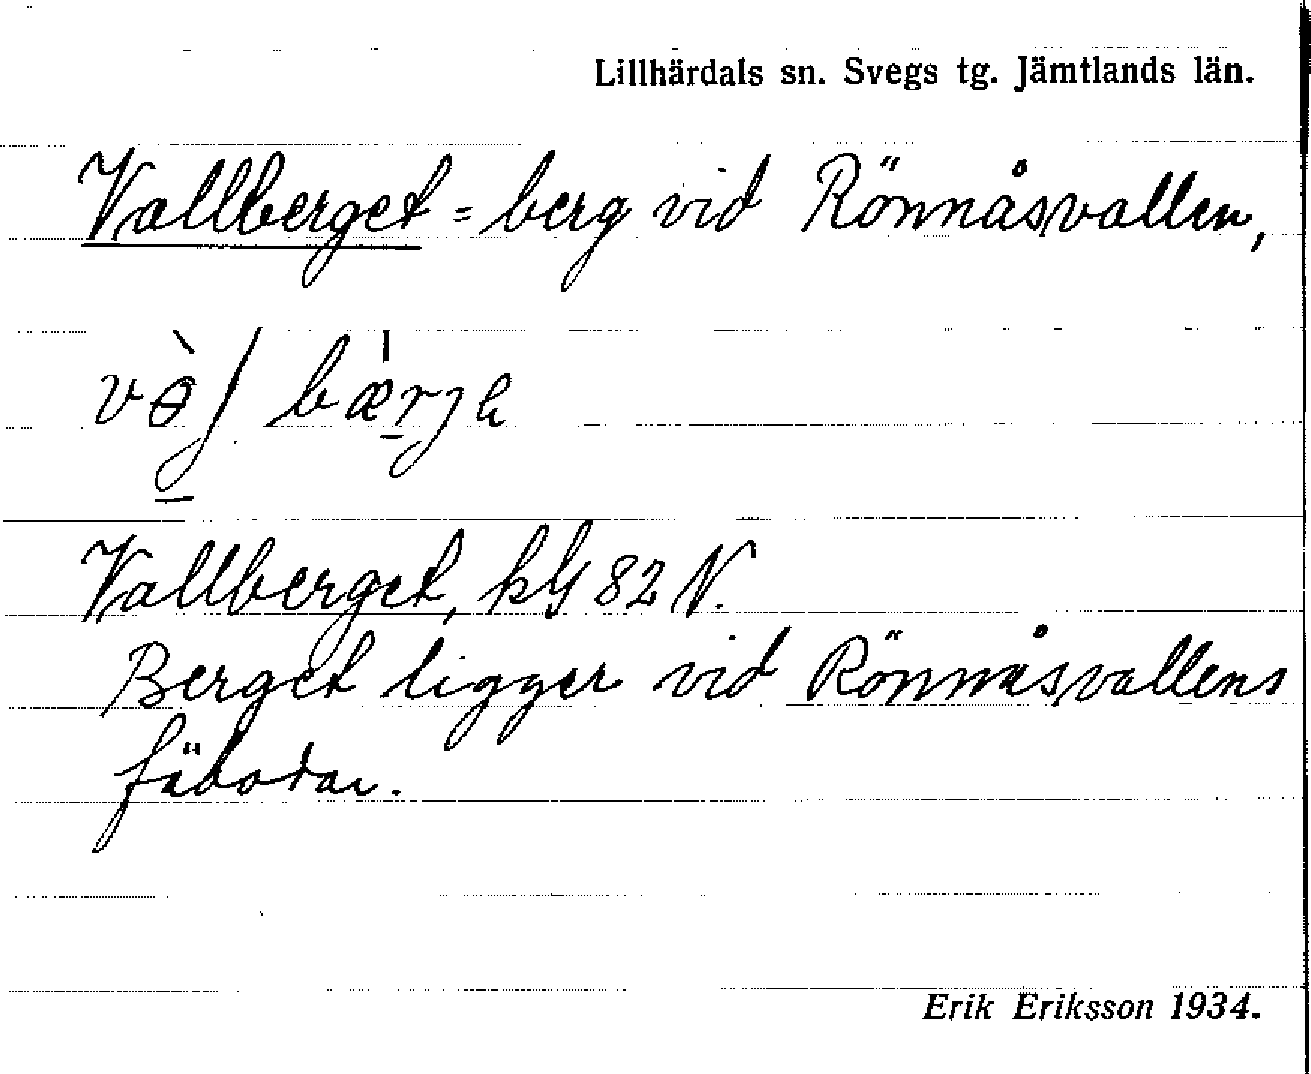 Lillhärdals sn. Svegs tg. Jämtlands län.
Vallberget = berg vid Rönnåsvallen,
Vallberget, kG 82 N.
Berget ligger vid Rönnåsvallens
fäbodar.
Erik Eriksson 1934.